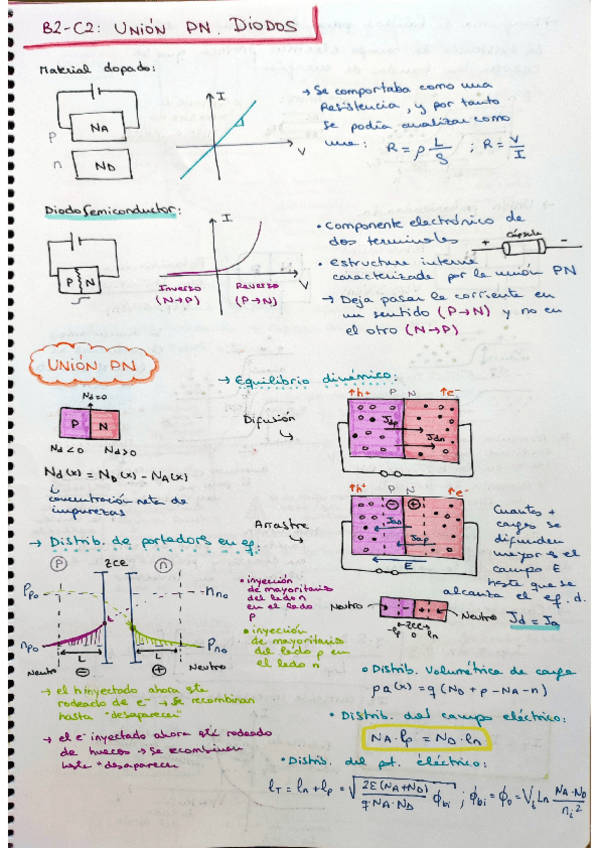 B2-C2: UNIÓN PN. DÍODOS
Material dopado:
P
n
NA
ND
I
V
→ Se comportaba como una
resistencia, y por tanto
se podía analizar como
una: R = ρ L/S ; R = V/I
Diodo Semiconductor:
P N
I
V
Inverso
(N→P)
(P→N)
• Componente electrónico de
dos terminales
+ cápsula -
• estructura interna
caracterizada por la unión PN
→ Deja pasar la corriente en
un sentido (P→N) y no en
el otro (N→P)
UNIÓN PN
Nd=0
P N
Nd<0 Nd>0
Nd(x) = ND(x) - NA(x)
concentración neta de
impurezas
→ Equilibrio dinámico:
Difusión
↑h+ P N ↑e-
Jdp
Jdn
Arrastre
↑h+ P N ↑e-
- +
Jan
Jap
E
Cuantas +
cargas se
difunden
mayor es el
campo E
hasta que se
alcanza el eq. d.
Jd = Ja
Neutro
Neutro
ZCE
lp 0 ln
→ Distrib. de portadores en eq.:
P ZCE n
Ppo
nno
npo
Pno
L
L
Neutro - + Neutro
• inyección
de mayoritarios
del lado n
en el lado
p
• inyección
de mayoritarios
del lado p en
el lado n
→ el h inyectado ahora está
rodeado de e- → se recombinan
hasta "desaparecer"
→ el e- inyectado ahora está rodeado
de huecos → Se recombinan
hasta "desaparecer"
• Distrib. Volumétrica de carga
ρQ(x) = q (ND + p - NA - n)
• Distrib. del campo eléctrico:
NA·lp = ND·ln
• Distrib. del pt. eléctrico:
lT = ln + lp = √(2ε(NA+ND)/(q NA·ND) ϕbi) ; ϕbi = ϕo = Vt Ln (NA·ND/ni²)